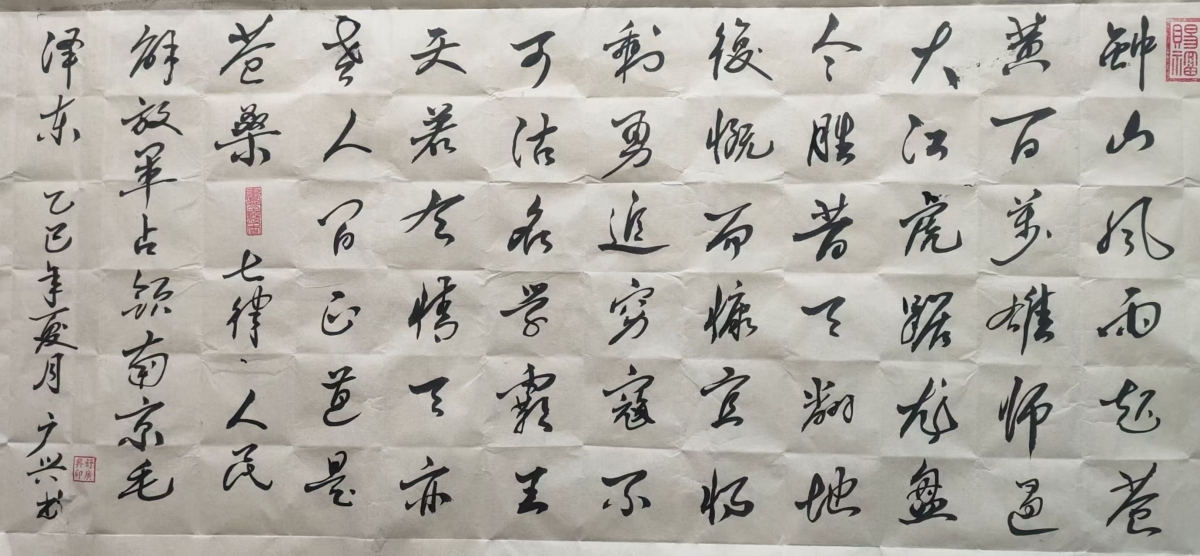 钟山风雨起苍
黄百万雄师过
大江虎踞龙盘
今胜昔天翻地
復慨而慷宜将
剩勇追穷寇不
可沽名学霸王
天若有情天亦
老人间正道是
苍桑 七律、人民
解放军占领南京毛
泽东 乙巳年夏月广兴书